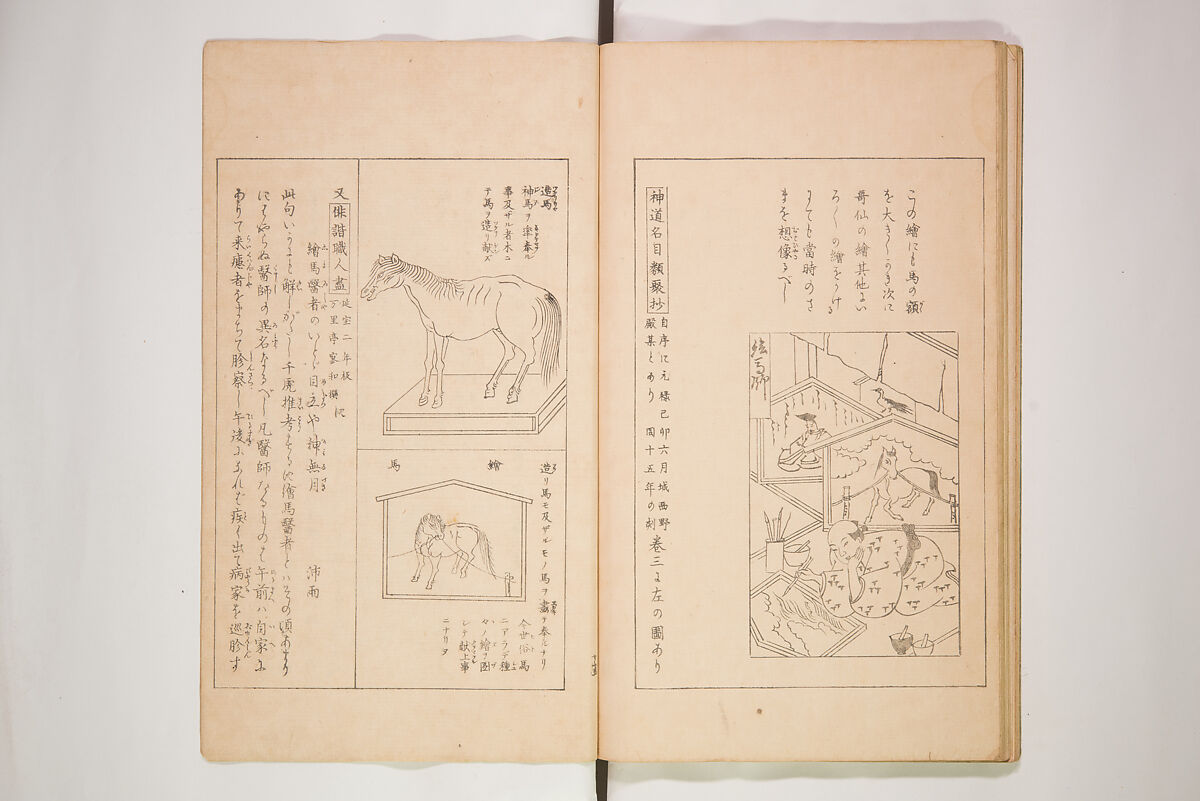 この繪にも馬の額
を大きくかき次に
哥仙の繪其他い
ろ〳〵の繪をかける
にても當時のさ
まを想像るべし
繪馬師
神道名目類聚抄
自序に元禄己卯六月城西野
殿某とあり 同十五年の刻
巻三に左の圖あり
造馬
神馬ヲ牽奉ル
事及ザル者木ニ
テ馬ヲ造リ献ズ
繪馬
造リ馬モ及ザルモノ馬ヲ畫テ奉ルナリ
今世俗馬
ニアラデ種
々ノ繪ヲ圖
シテ献上事
ニナリヌ
又俳諧職人盡
延宝二年板
万里亭
繪馬醫者のいとゞ目立や神無月 沛雨
此句いかにも解しがたし千慮推考するに繪馬醫者とハその頃あまり
にはやらぬ醫師の異名なるべし凡醫師なるものは午前ハ自家に
ありて来癒者をまちて胗察し午後にあれば疾く出て病家を巡胗す